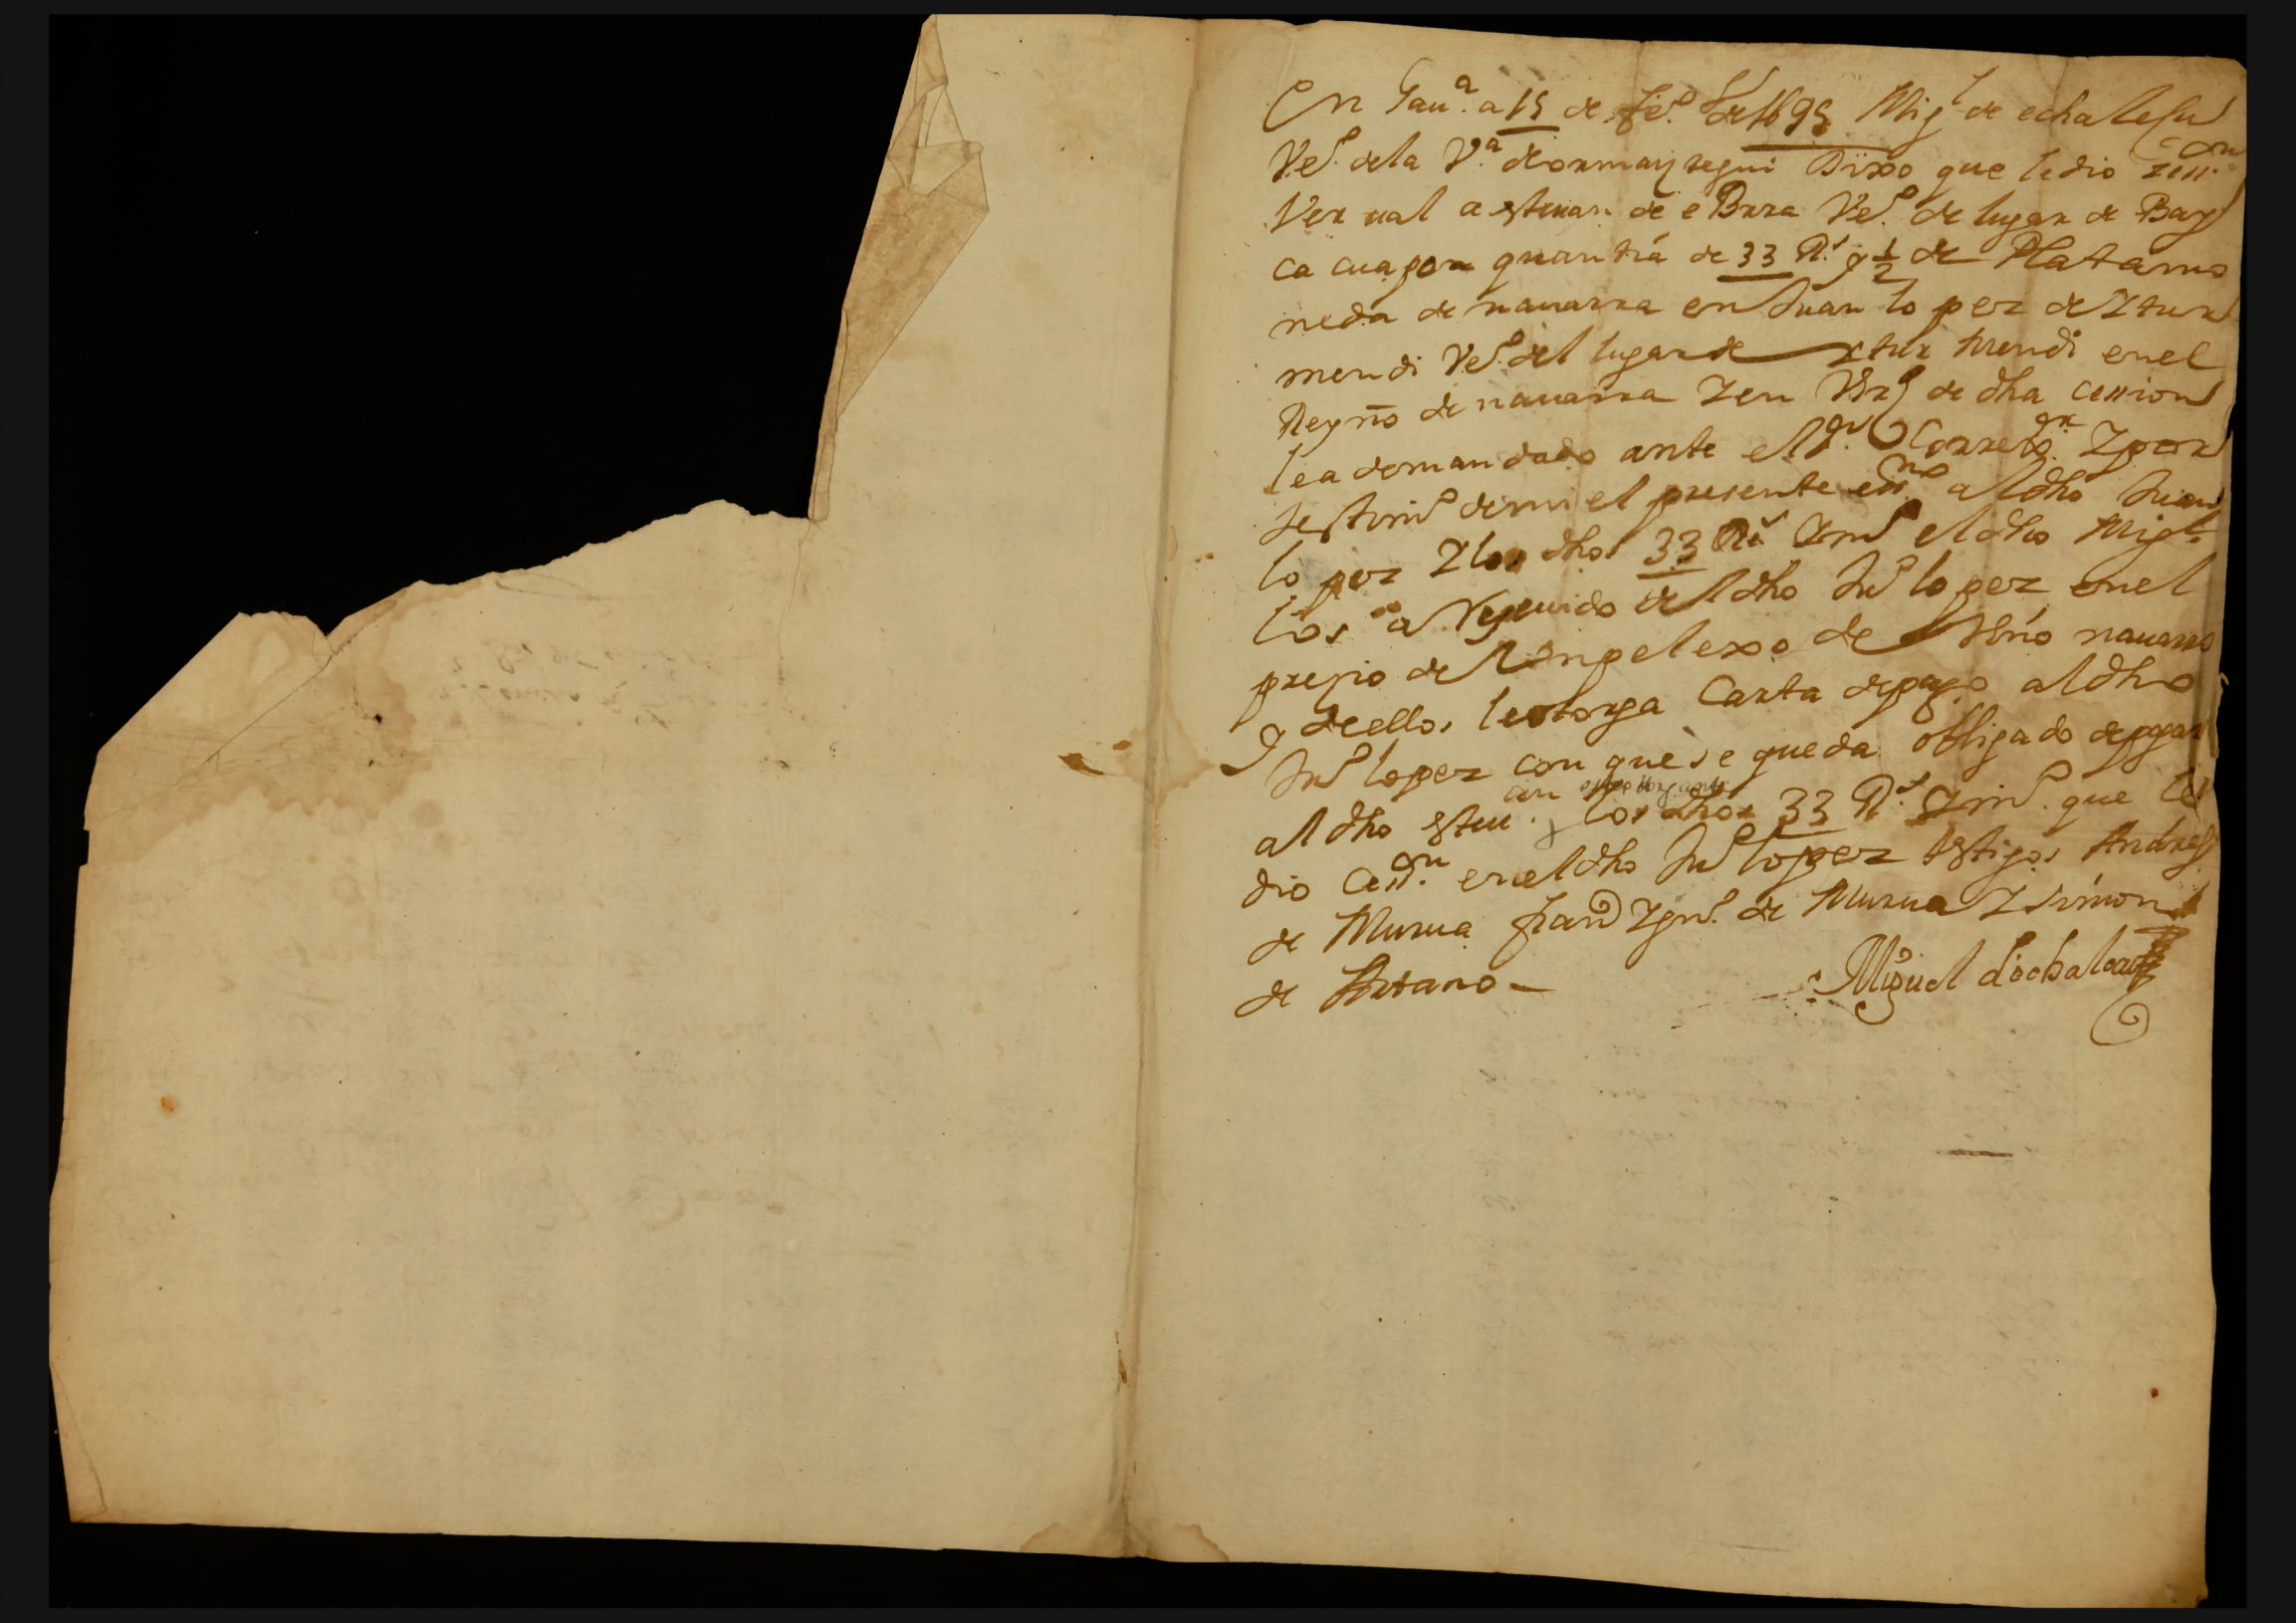 En Gau.ª a 15 de fe.º de 1695 Mig.l de echalesu
Ve.º dela V.ª de ormayztegui Dixo que le dio zess.on
Verual a esteuan de eBrra Ve.º de lugar de Bay
ca cua por quantia de 33 R.s y 1/2 de Platamo
neda de nauarra en Juan lopez de Ytur
mendi Ve.º del lugar de ytur mendi enel
Reyno de nauarra Y en Vir.d de dha cession
lea demandado ante el S.or Correx.or Y por
testim.º demi el presente ess.no al dho Juan
lopez Y los dhos 33 R.s Y m.º el dho Mig.l
los a Reçeuido del dho Ju.º lopez enel
preçio de Vn pelexo de Vino nauarro
y de ellos le otorga Carta depago al dho
Ju.º lopez con que se queda obligado de pagar
al dho esteu.an este otorgante los dhos 33 R.s Y m.º que le
dio Cess.on enel dho Ju.º lopez testigos Andres
de Murua fran.co Ygn.º de Murua Y simon
de
Miguel de echaleçu